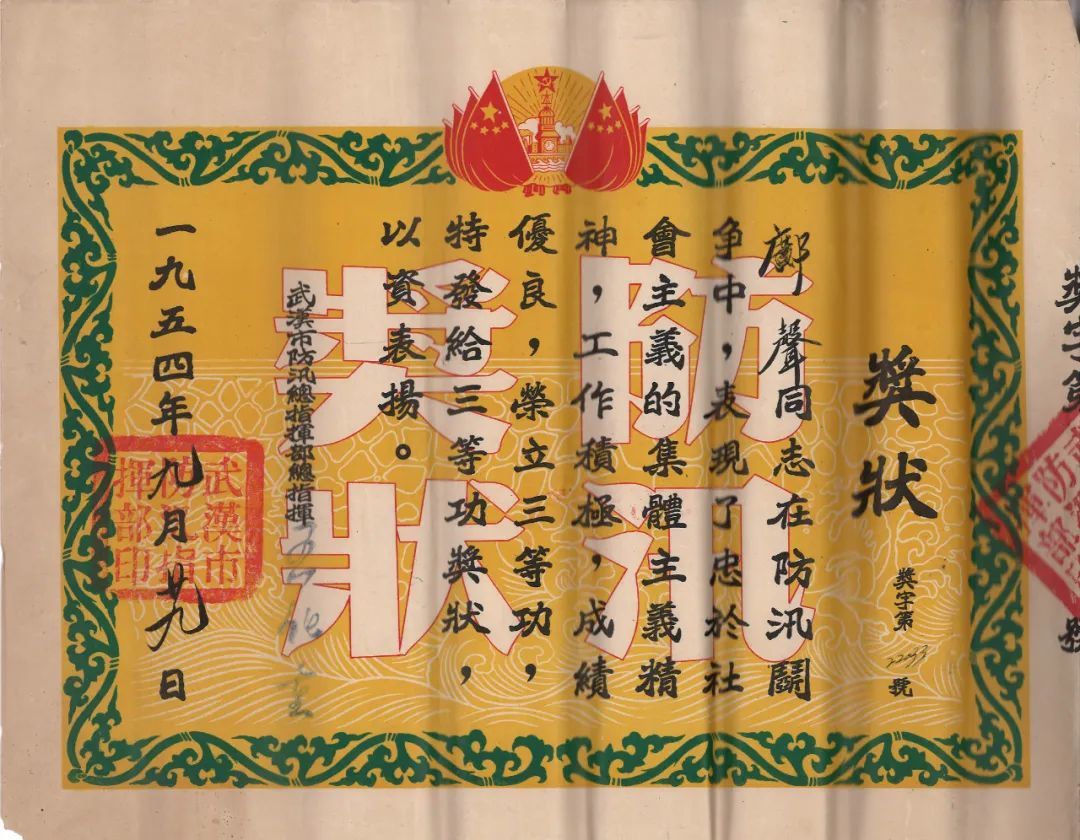 獎狀
獎字第
號
鄺聲同志在防汛鬪
争中，表現了忠於社
會主義的集體主義精
神，工作積極，成績
優良，榮立三等功，
特發給三等功獎狀，
以資表揚。
武漢市防汛總指揮部總指揮
一九五四年九月廿九日
防汛
獎狀
武漢市
揮部印
獎字第